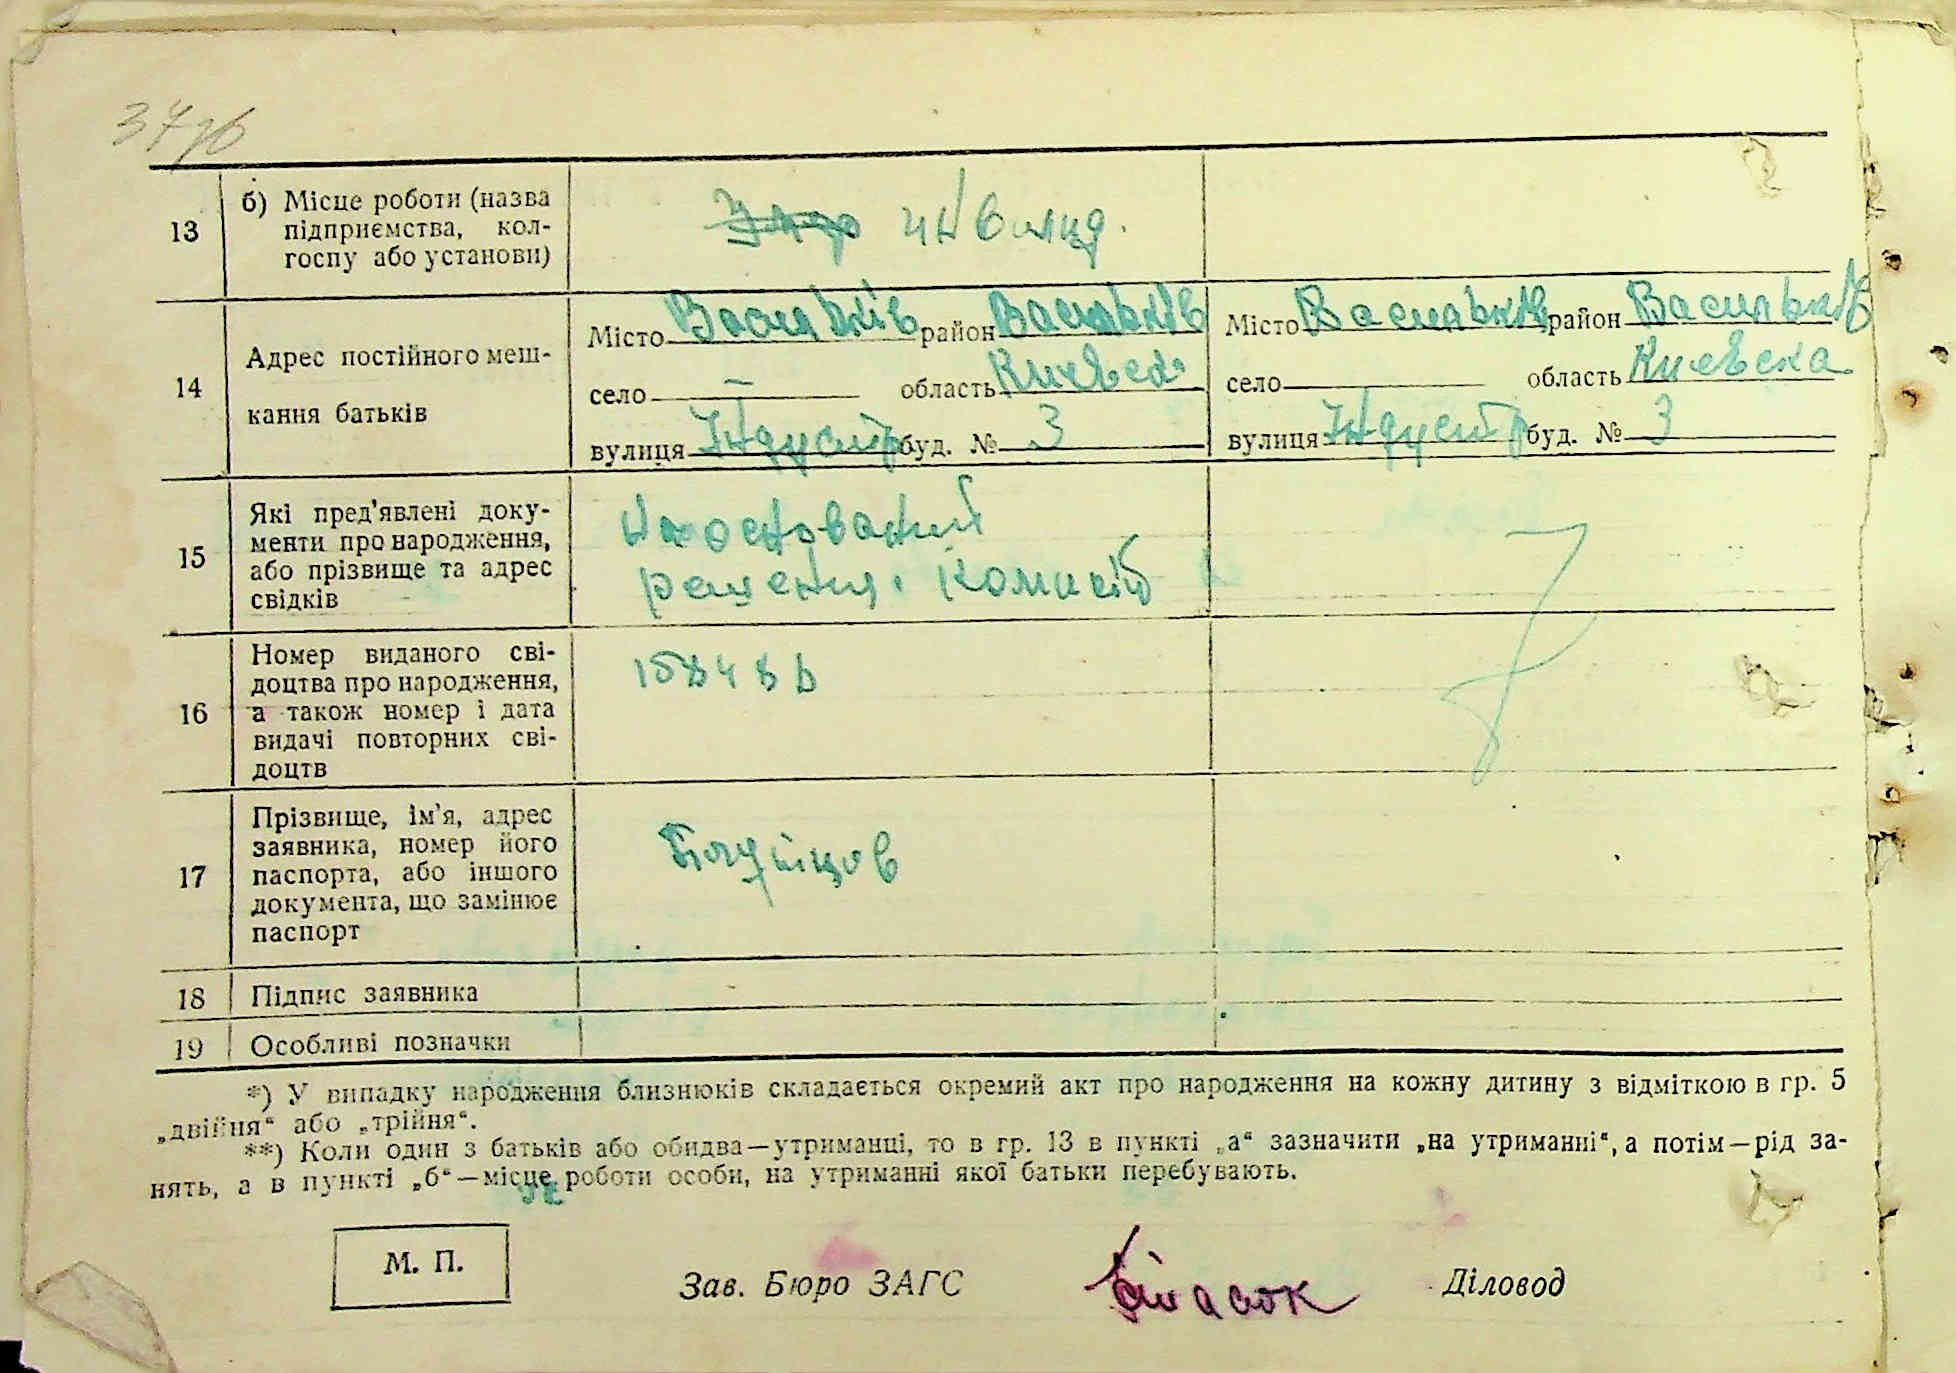 37 зб
13
б) Місце роботи (назва
підприємства, кол-
госпу або установи)
инвалид.
14
Адрес постійного меш-
кання батьків
Місто Васильків район Васильків
село — область Киевска
вулиця Індустр буд. № 3
Місто Васильків район Васильків
село область Киевска
вулиця Індустр буд. № 3
15
Які пред'явлені доку-
менти про народження,
або прізвище та адрес
свідків
На основании
решения комисіі
16
Номер виданого сві-
доцтва про народження,
а також номер і дата
видачі повторних сві-
доцтв
17
Прізвище, ім'я, адрес
заявника, номер його
паспорта, або іншого
документа, що замінює
паспорт
18
Підпис заявника
19
Особливі позначки
*) У випадку народження близнюків складається окремий акт про народження на кожну дитину з відміткою в гр. 5
„двійня“ або „трійня“.
**) Коли один з батьків або обидва—утриманці, то в гр. 13 в пункті „а“ зазначити „на утриманні“, а потім—рід за-
нять, а в пункті „б“—місце роботи особи, на утриманні якої батьки перебувають.
М. П.
Зав. Бюро ЗАГС
Діловод